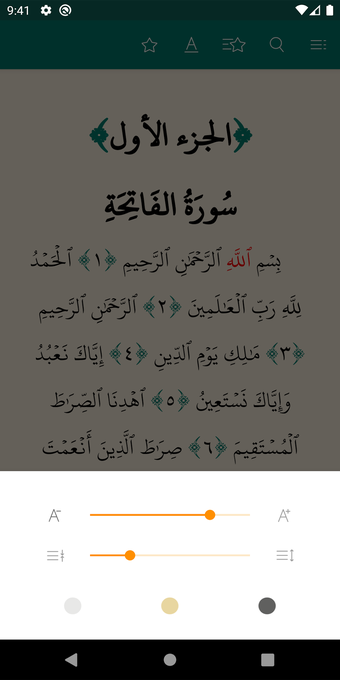 9:41
A
﴿الجزء الأول﴾
سُورَةُ الفَاتِحَةِ
بِسْمِ ٱللَّهِ ٱلرَّحْمَٰنِ ٱلرَّحِيمِ ﴿١﴾ ٱلْحَمْدُ
لِلَّهِ رَبِّ ٱلْعَٰلَمِينَ ﴿٢﴾ ٱلرَّحْمَٰنِ ٱلرَّحِيمِ
﴿٣﴾ مَٰلِكِ يَوْمِ ٱلدِّينِ ﴿٤﴾ إِيَّاكَ نَعْبُدُ
وَإِيَّاكَ نَسْتَعِينُ ﴿٥﴾ ٱهْدِنَا ٱلصِّرَٰطَ
ٱلْمُسْتَقِيمَ ﴿٦﴾ صِرَٰطَ ٱلَّذِينَ أَنْعَمْتَ
A- A+